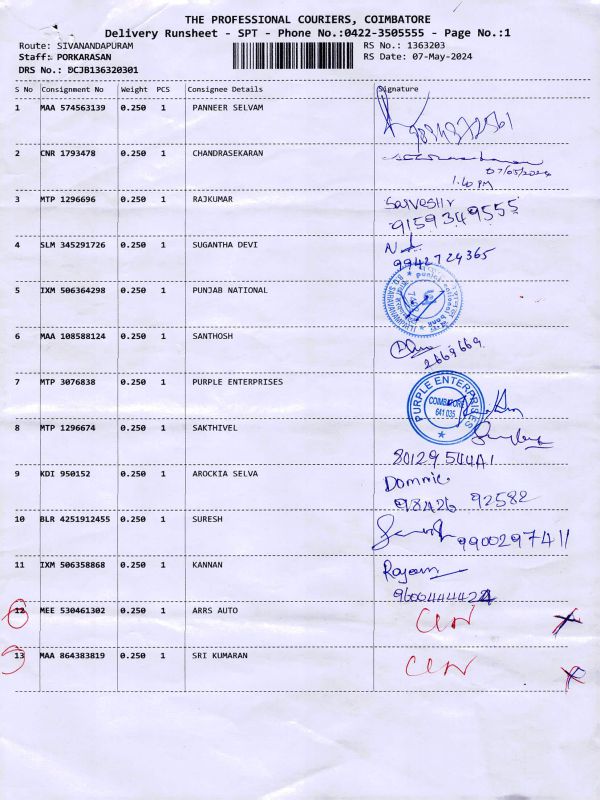 THE PROFESSIONAL COURIERS, COIMBATORE
Delivery Runsheet - SPT - Phone No.:0422-3505555 - Page No.:1
Route: SIVANANDAPURAM RS No.: 1363203
Staff: PORKARASAN RS Date: 07-May-2024
DRS No.: BCJB136320301
S No Consignment No Weight PCS Consignee Details Signature
1 MAA 574563139 0.250 1 PANNEER SELVAM
2 CNR 1793478 0.250 1 CHANDRASEKARAN
07/05/2024
1.40 PM
3 MTP 1296696 0.250 1 RAJKUMAR Sarveshr
9159349555
4 SLM 345291726 0.250 1 SUGANTHA DEVI
9942724365
5 IXM 506364298 0.250 1 PUNJAB NATIONAL
6 MAA 108588124 0.250 1 SANTHOSH
2669669
7 MTP 3076838 0.250 1 PURPLE ENTERPRISES
PURPLE ENTERPRISES
COIMBATORE
641 035
8 MTP 1296674 0.250 1 SAKTHIVEL
9 KDI 950152 0.250 1 AROCKIA SELVA Dommic
98426 92582
10 BLR 4251912455 0.250 1 SURESH
9900297411
11 IXM 506358868 0.250 1 KANNAN
12 MEE 530461302 0.250 1 ARRS AUTO
13 MAA 864383819 0.250 1 SRI KUMARAN